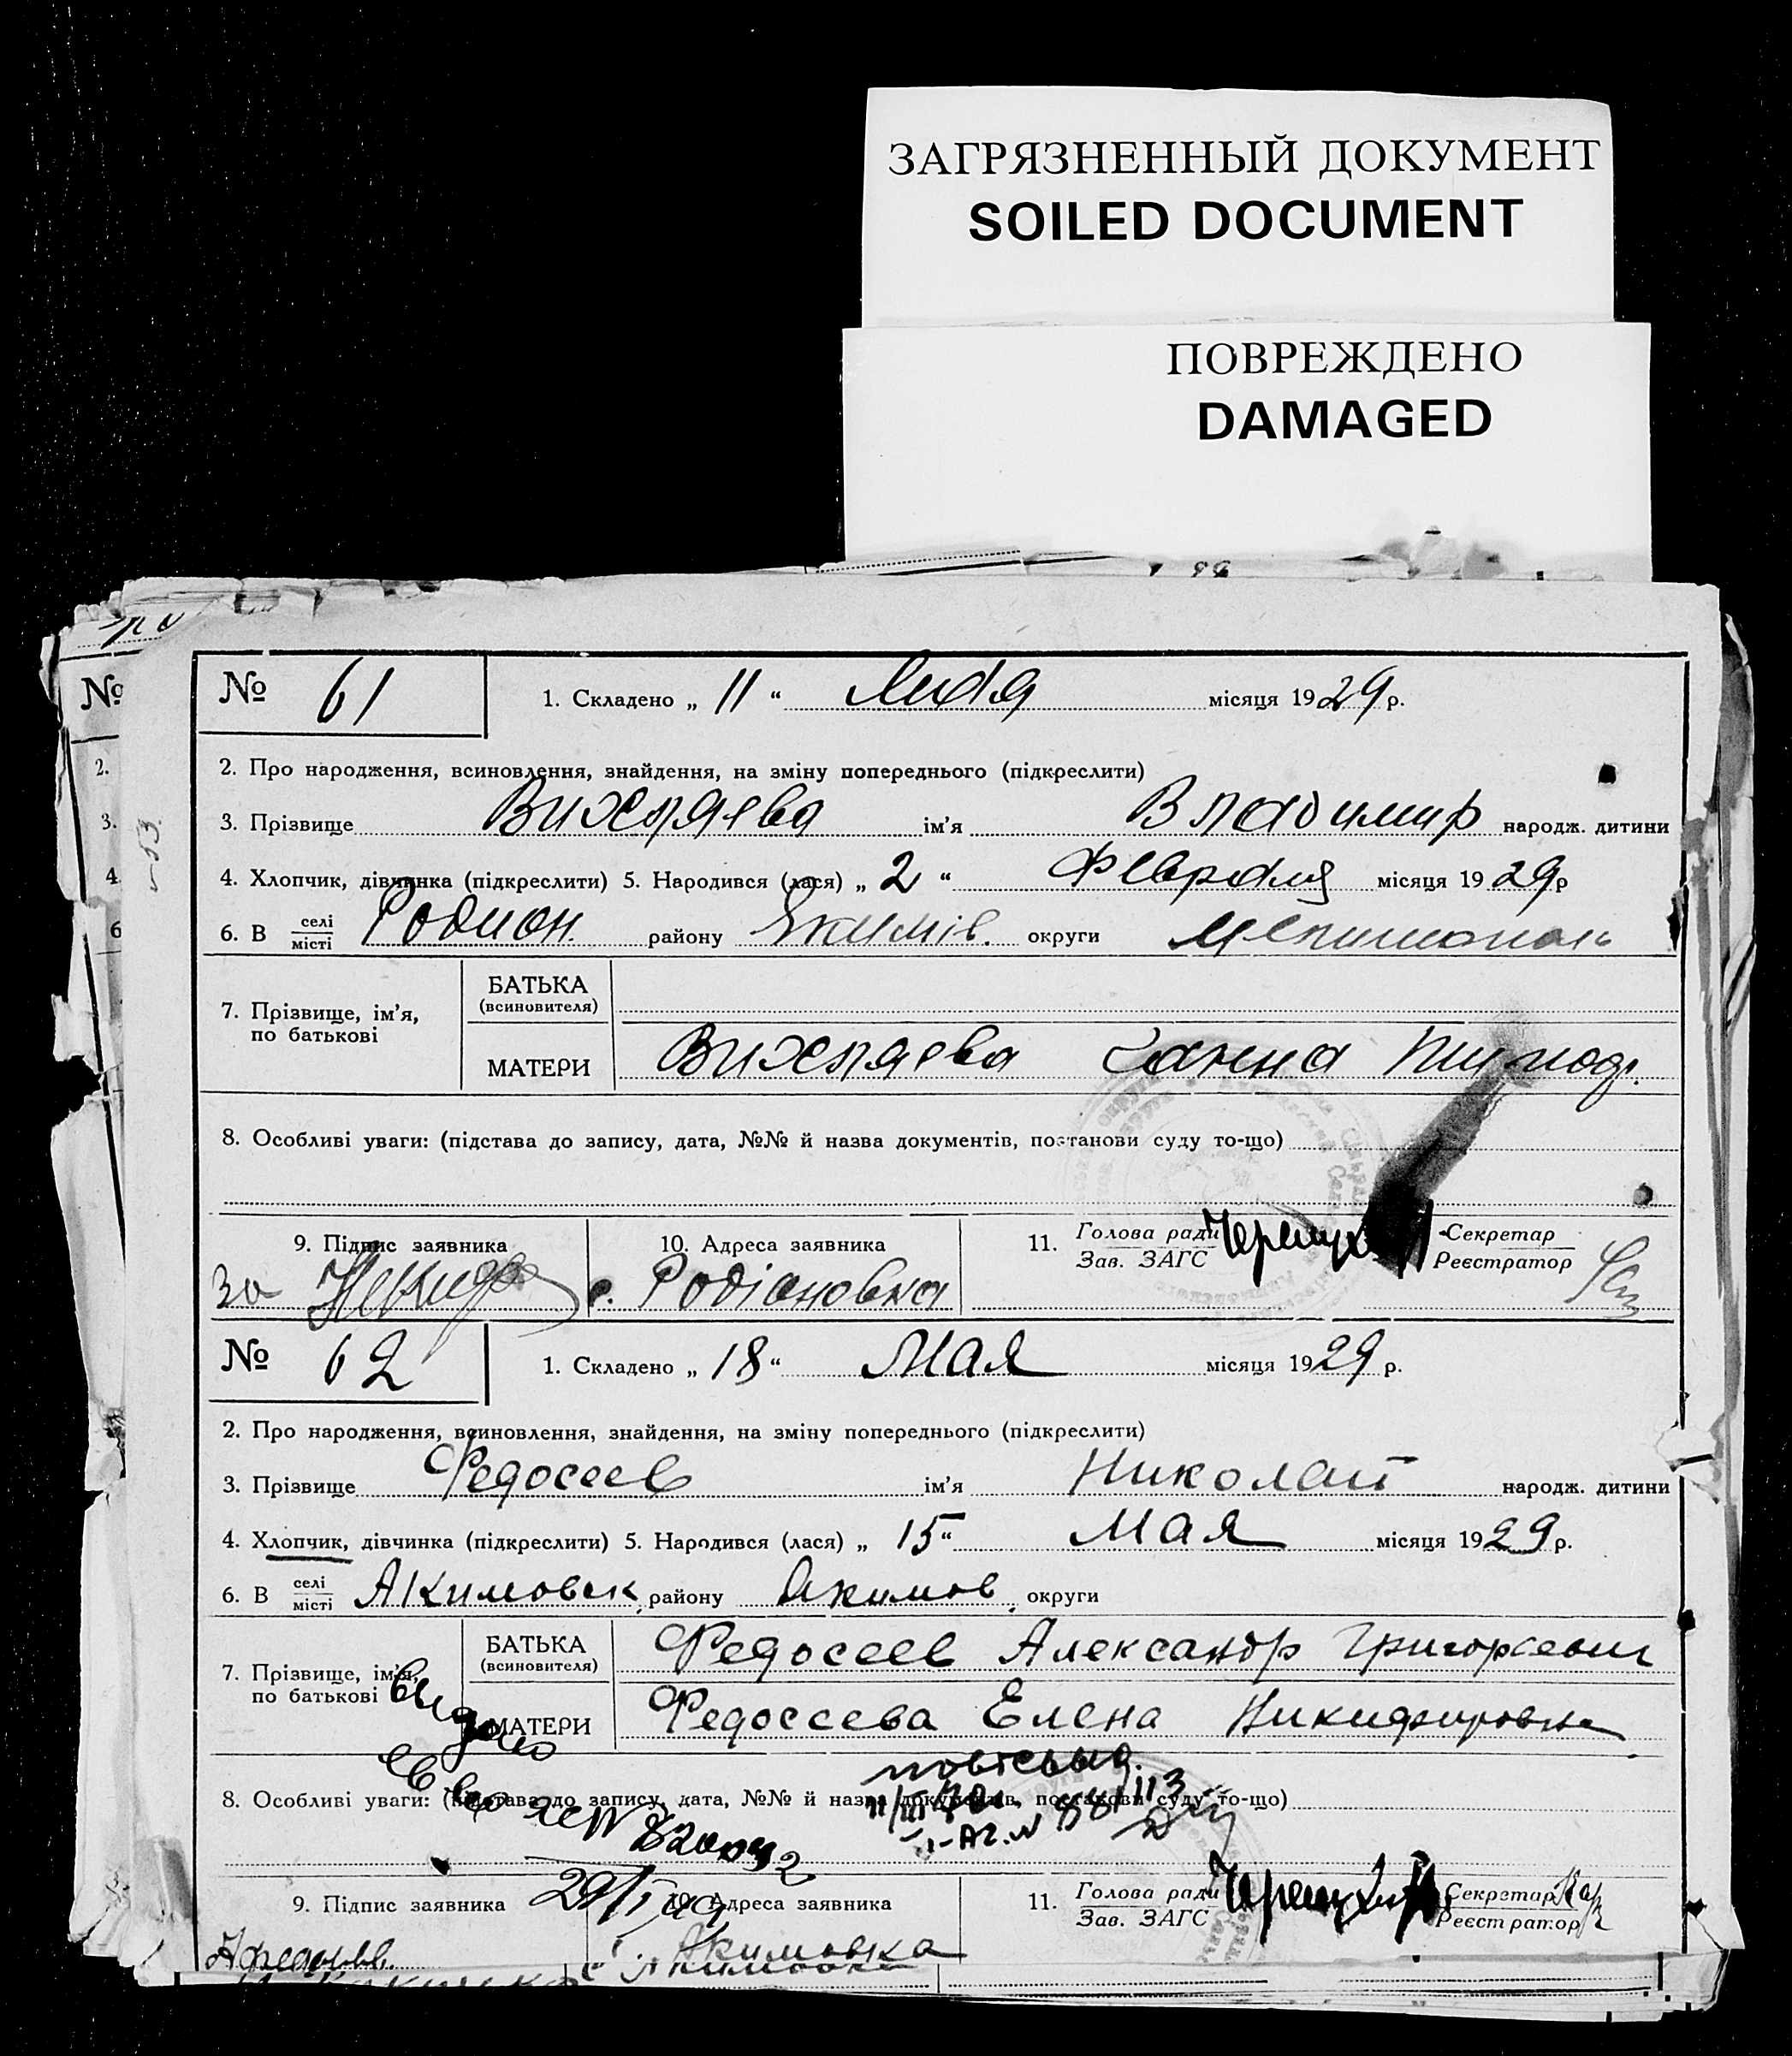 ЗАГРЯЗНЕННЫЙ ДОКУМЕНТ
SOILED DOCUMENT
ПОВРЕЖДЕНО
DAMAGED
№ 61 1. Складено „ 11 “ Мая місяця 1929 р.
2. Про народження, всиновлення, знайдення, на зміну попереднього (підкреслити)
3. Прізвище Вихляева ім’я Владимир народж. дитини
4. Хлопчик, дівчинка (підкреслити) 5. Народився (лася) „ 2 “ Февраля місяця 1929 р
6. В селі місті Родион. району Якимів. округи Мелитополь
7. Прізвище, ім’я, по батькові
БАТЬКА (всиновителя)
МАТЕРИ Вихляева Ганна
8. Особливі уваги: (підстава до запису, дата, №№ й назва документів, постанови суду то-що)
9. Підпис заявника 10. Адреса заявника 11. Голова ради Зав. ЗАГС Секретар Реєстратор
за с. Родіоновка
№ 62 1. Складено „ 18 “ Мая місяця 1929 р.
2. Про народження, всиновлення, знайдення, на зміну попереднього (підкреслити)
3. Прізвище Федосеев ім’я Николай народж. дитини
4. Хлопчик, дівчинка (підкреслити) 5. Народився (лася) „ 15 “ Мая місяця 1929 р.
6. В селі місті Акимовск. району Акимов. округи
7. Прізвище, ім’я, по батькові
БАТЬКА (всиновителя) Федосеев Александр Григорьевич
МАТЕРИ Федосеева Елена Никифоровна
8. Особливі уваги: (підстава до запису, дата, №№ й назва документів, постанови суду то-що)
9. Підпис заявника 10. Адреса заявника 11. Голова ради Зав. ЗАГС Секретар Реєстратор
с. Акимовка